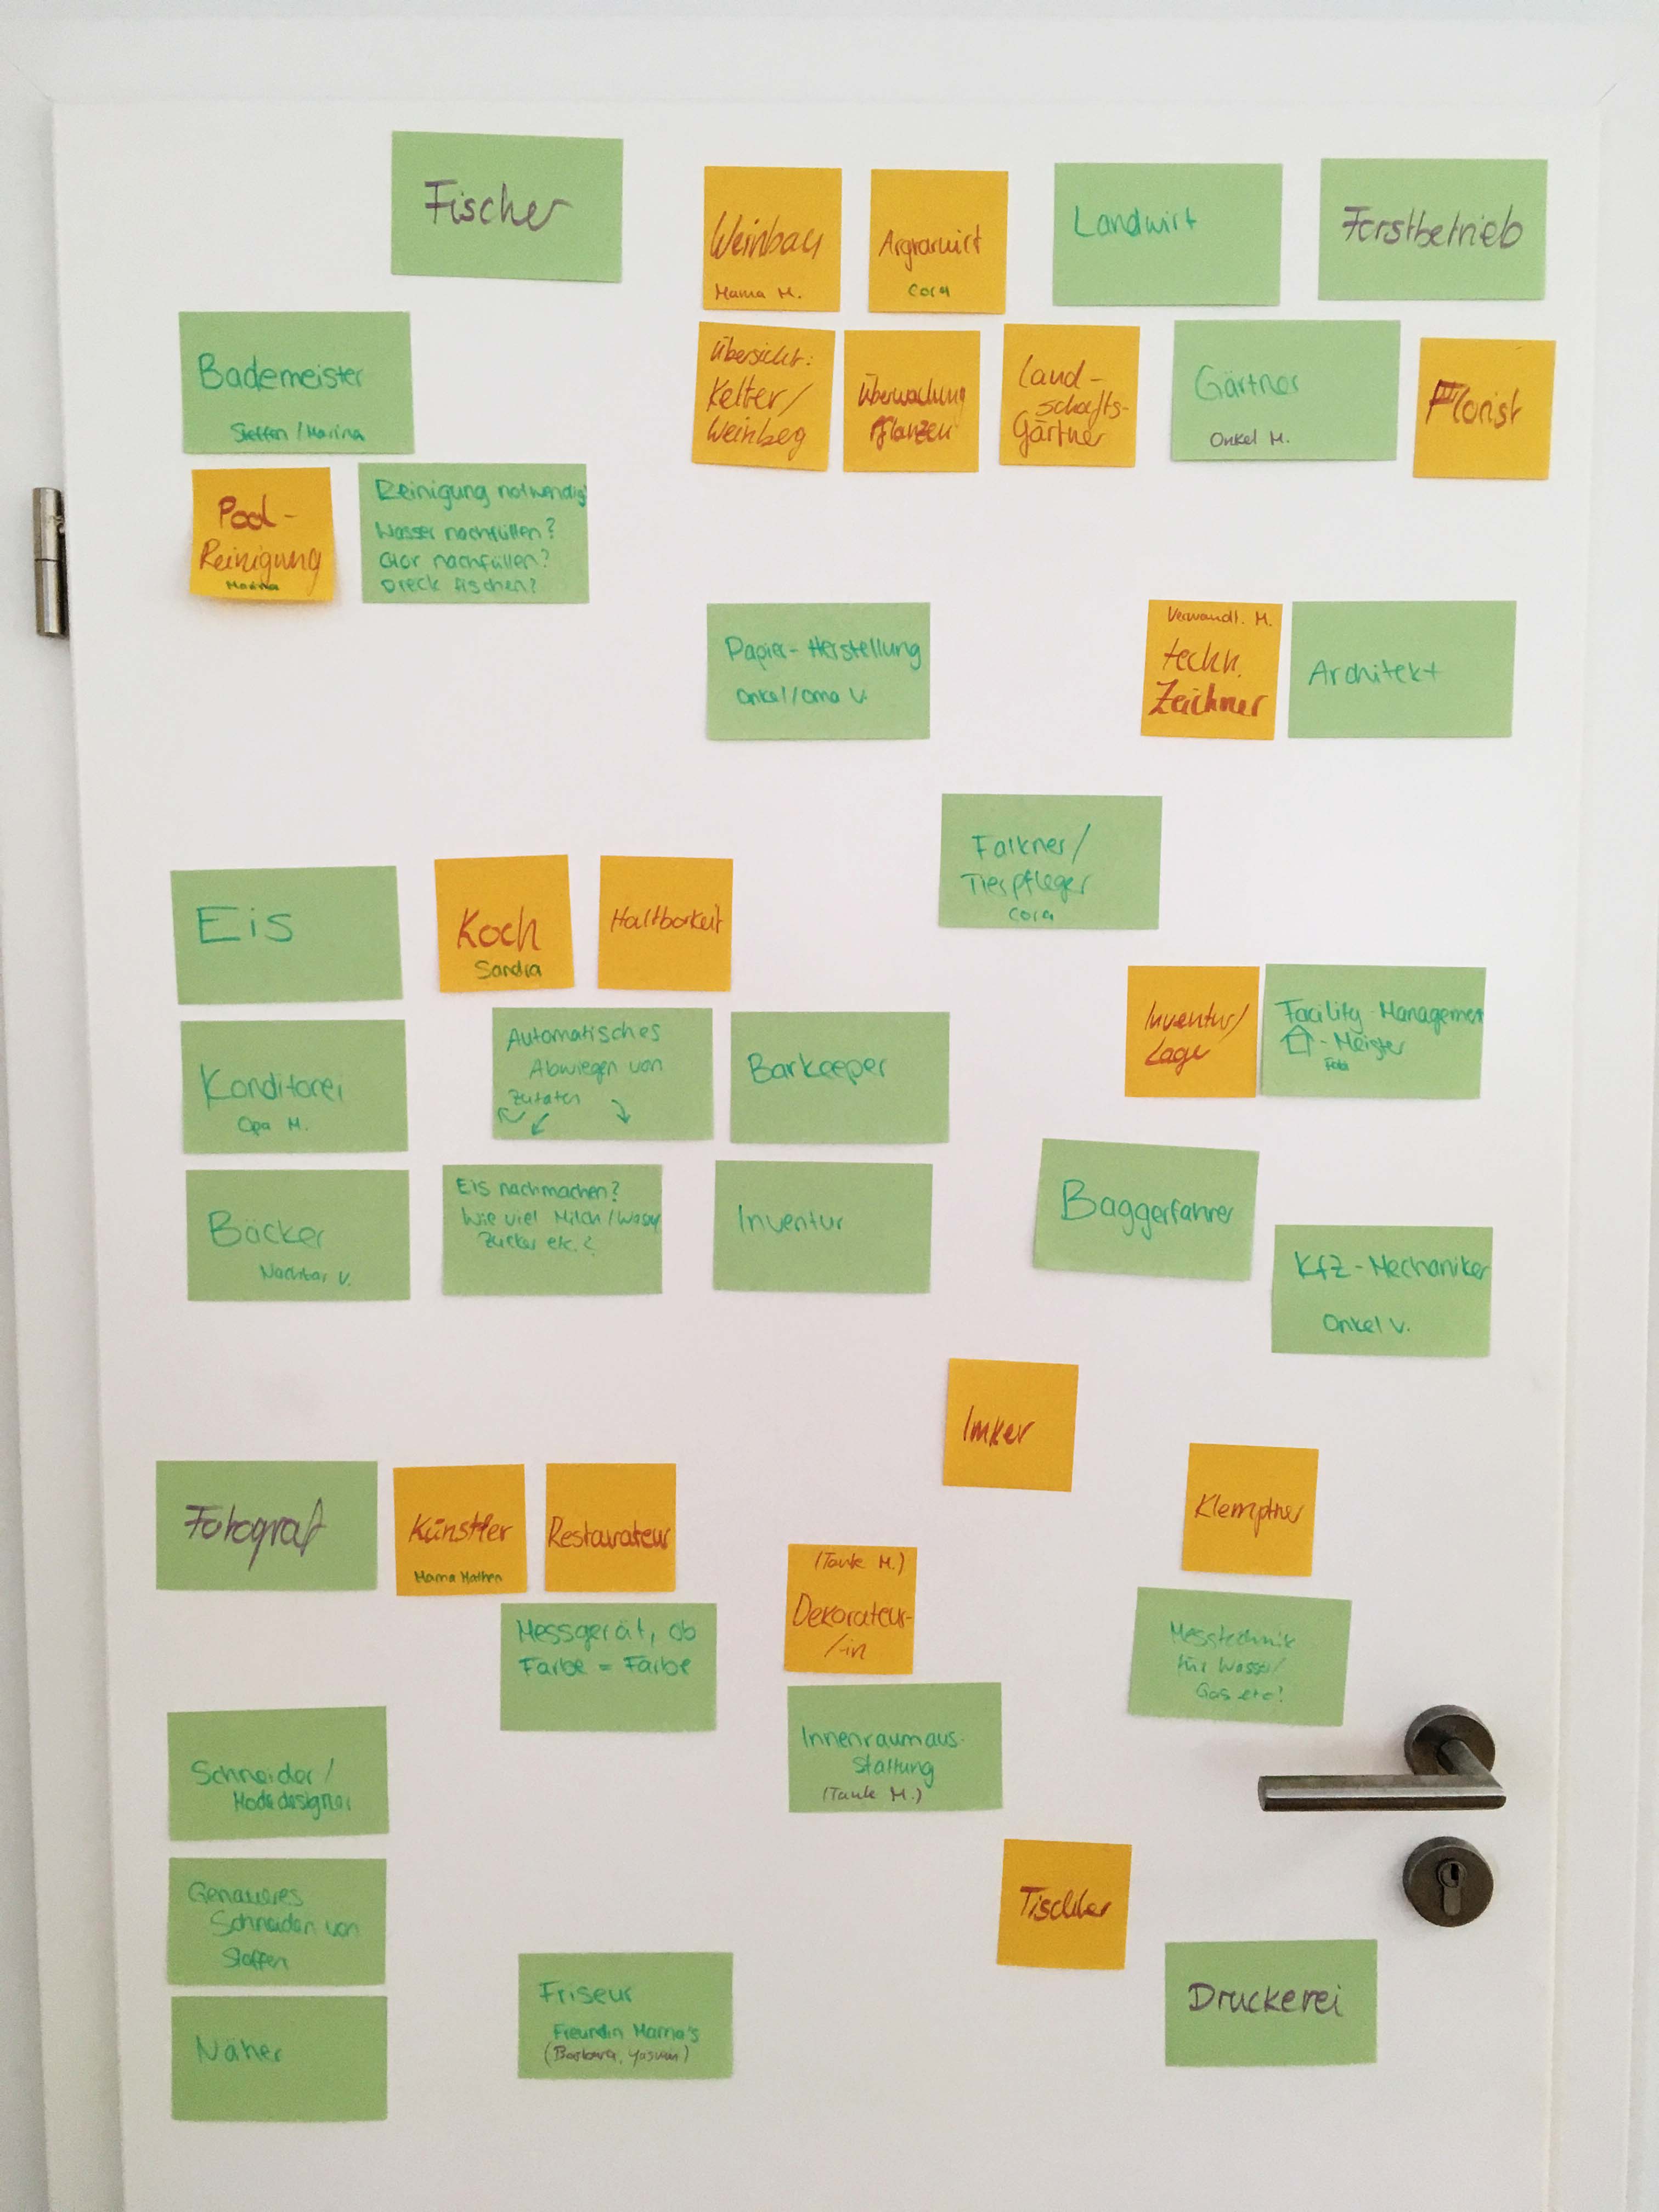 Fischer
Weinbau
Mama M.
Argrarwirt
Cora
Landwirt
Forstbetrieb
Bademeister
Steffen / Marina
Übersicht:
Kelter/
Weinberg
Überwachung
Pflanzen
Land-
schafts-
Gärtner
Gärtner
Onkel M.
Florist
Pool-
Reinigung
Marina
Reinigung notwendig?
Wasser nachfüllen?
Chlor nachfüllen?
Dreck fischen?
Papier-Herstellung
Onkel/Oma V.
Verwandt. M.
techn.
Zeichner
Architekt
Falkner/
Tierpfleger
Cora
Eis
Koch
Sandra
Haltbarkeit
Inventur/
Lage
Facility-Management
-Meister
Konditorei
Opa M.
Automatisches
Abwiegen von
Zutaten
Barkeeper
Bäcker
Nachbar V.
Eis nachmachen?
Wie viel Milch/Wasser
Zucker etc.?
Inventur
Baggerfahrer
Kfz-Mechaniker
Onkel V.
Imker
Klemptner
Fotograf
Künstler
Mama
Restaurateur
(Tante M.)
Dekorateur-
/-in
Messgerät, ob
Farbe = Farbe
Messtechnik
für Wasser/
Gas etc!
Innenraumaus-
stattung
(Tante M.)
Schneider/
Modedesigner
Genaueres
Schneiden von
Stoffen
Tischler
Näher
Friseur
Freundin Mama's
(Barbara, Yasmin)
Druckerei